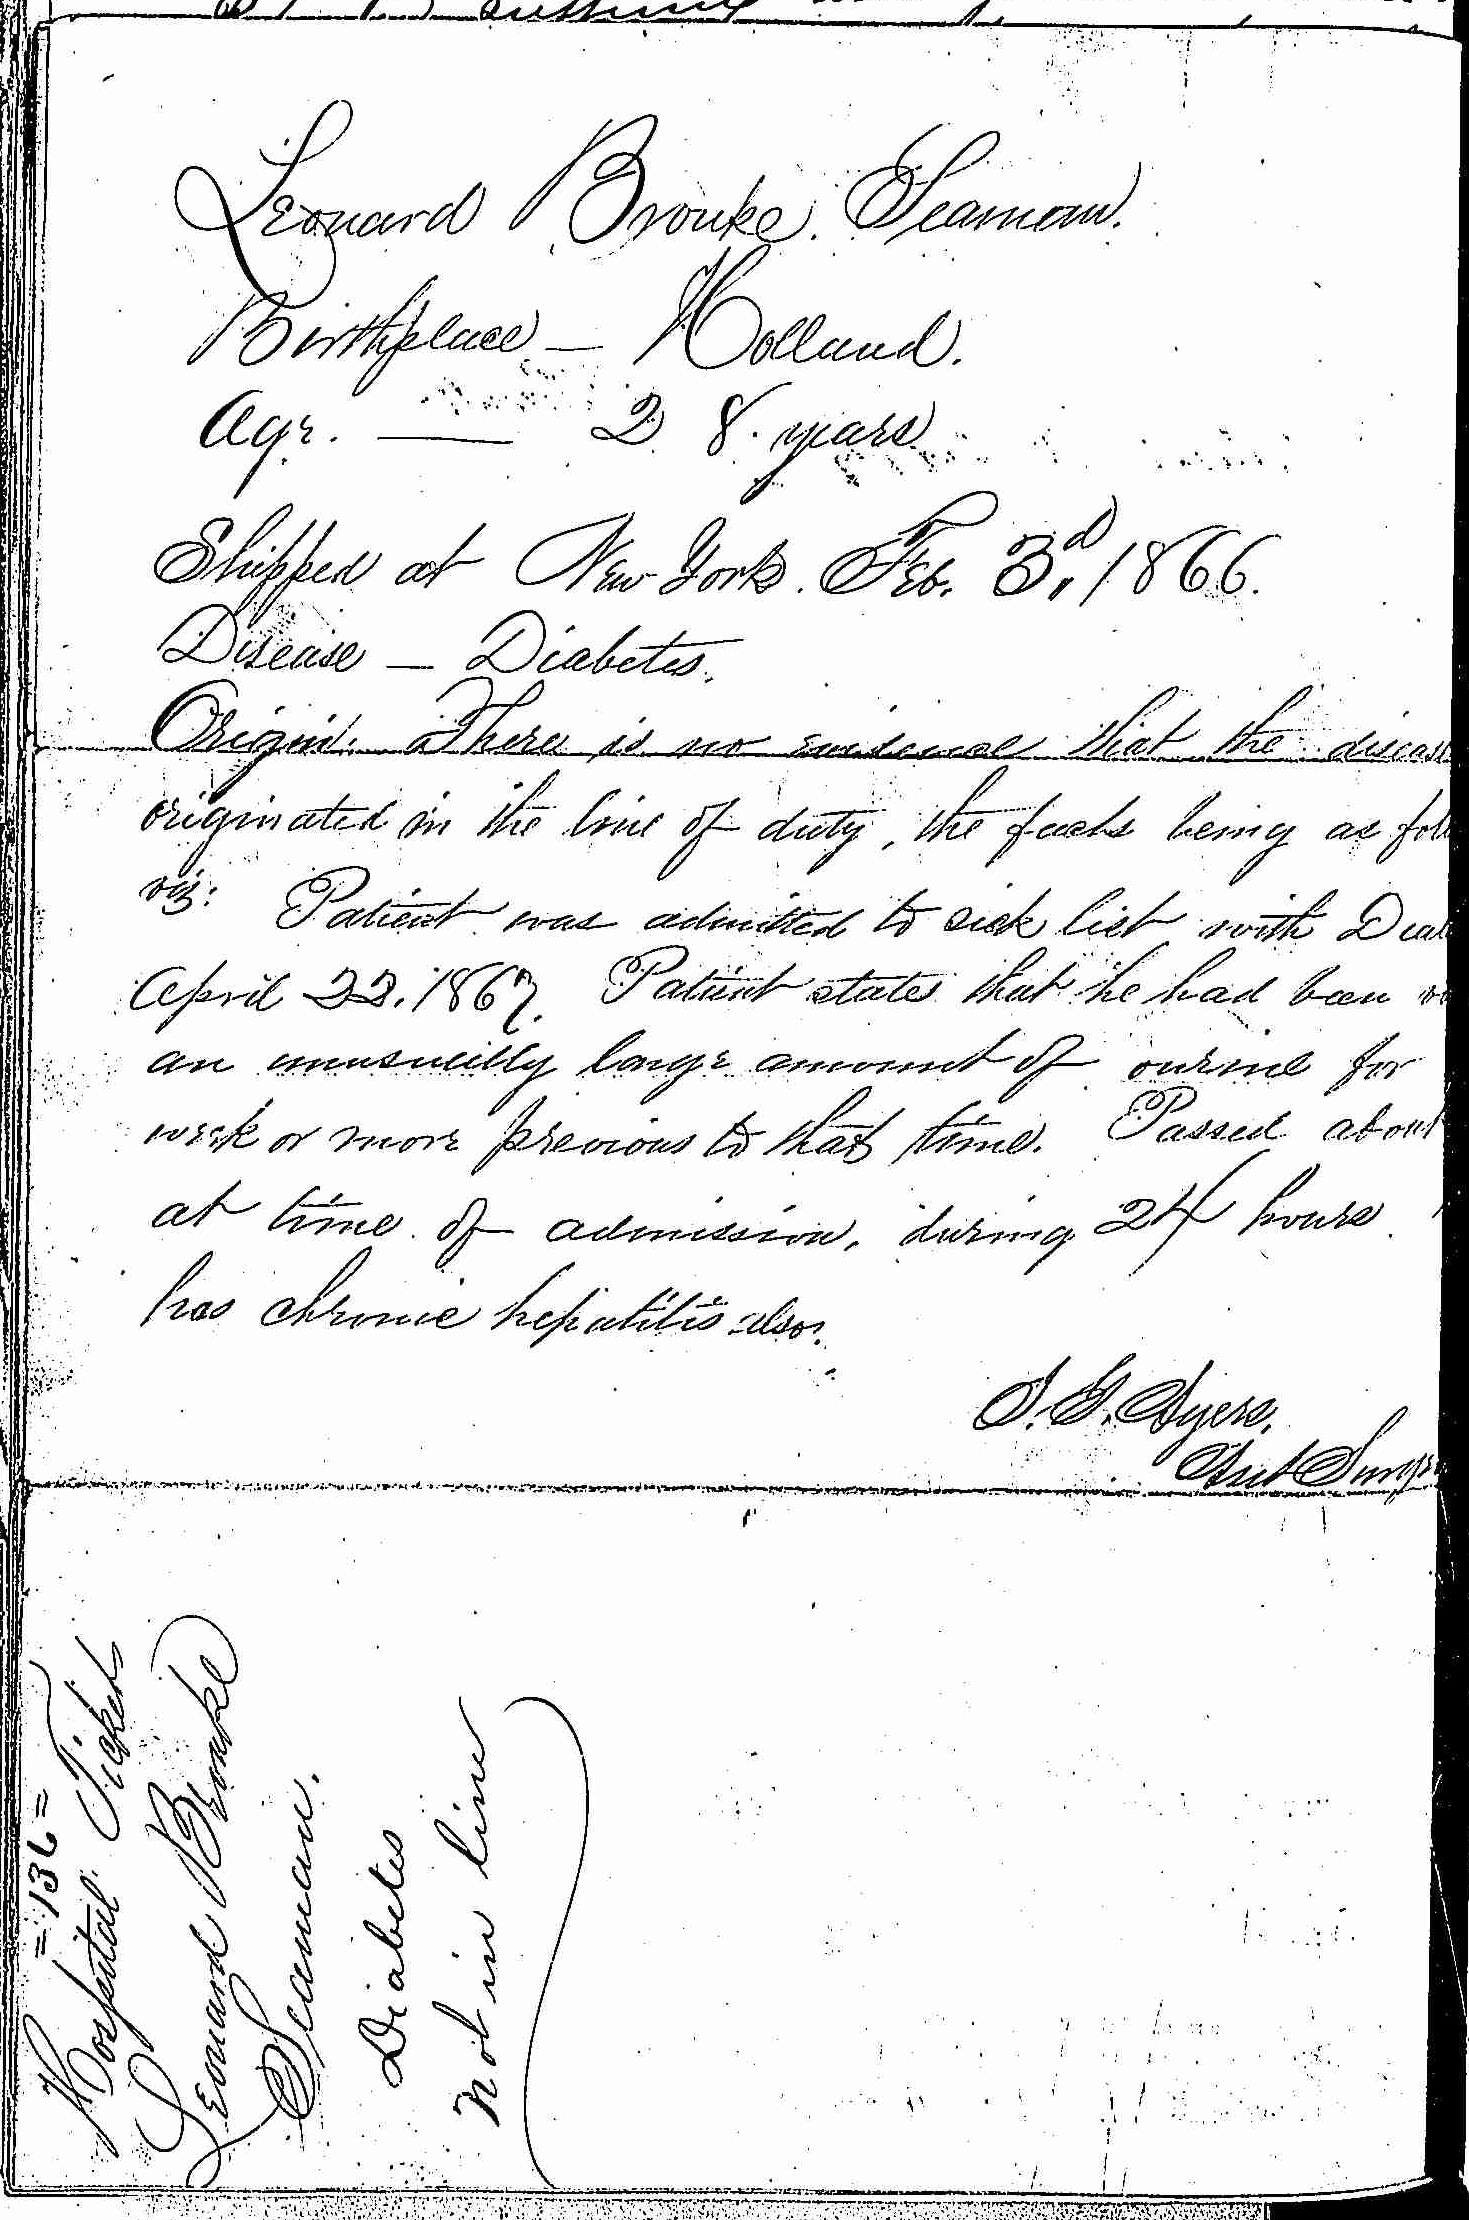 Leonard Brouke. Seaman.
Birthplace — Holland.
Age. — 28. years
Shipped at New York. Feb. 3d, 1866.
Disease — Diabetes.
Origin. There is no evidence that the diseas
originated in the line of duty, the facts being as foll
viz: Patient was admitted to sick list with Diab
April 22. 1867. Patient states that he had been
an unusually large amount of ourine for
week or more previous to that time. Passed about
at time of admission, during 24 hours.
has chronic hepatitis also.
Ayers.
Asst Surge
= 136 =
Hospital Ticket
Leonard Brouke
Seaman.
Diabetes
Not in line